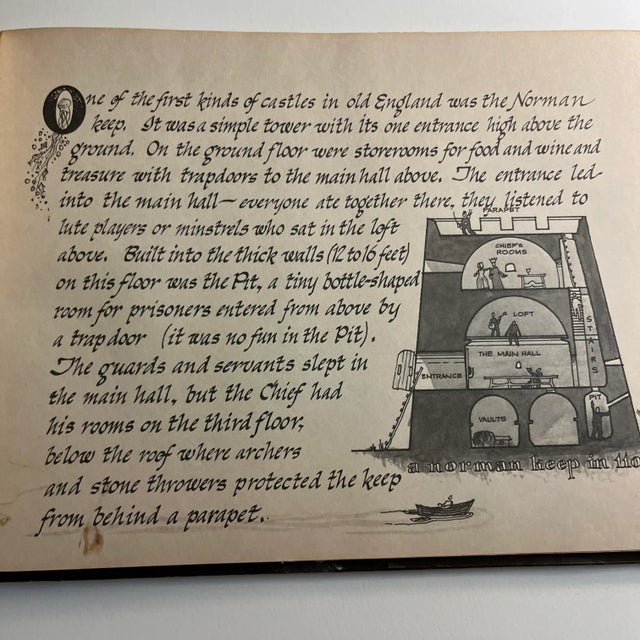 One of the first kinds of castles in old England was the Norman
keep. It was a simple tower with its one entrance high above the
ground. On the ground floor were storerooms for food and wine and
treasure with trapdoors to the main hall above. The entrance led
into the main hall — everyone ate together there, they listened to
lute players or minstrels who sat in the loft
above. Built into the thick walls (12 to 16 feet)
on this floor was the Pit, a tiny bottle-shaped
room for prisoners entered from above by
a trapdoor (it was no fun in the Pit).
The guards and servants slept in
the main hall, but the Chief had
his rooms on the third floor,
below the roof where archers
and stone throwers protected the keep
from behind a parapet.
PARAPET
CHIEF'S
ROOMS
LOFT
STAIRS
THE MAIN HALL
ENTRANCE
VAULTS
PIT
a norman keep in 110